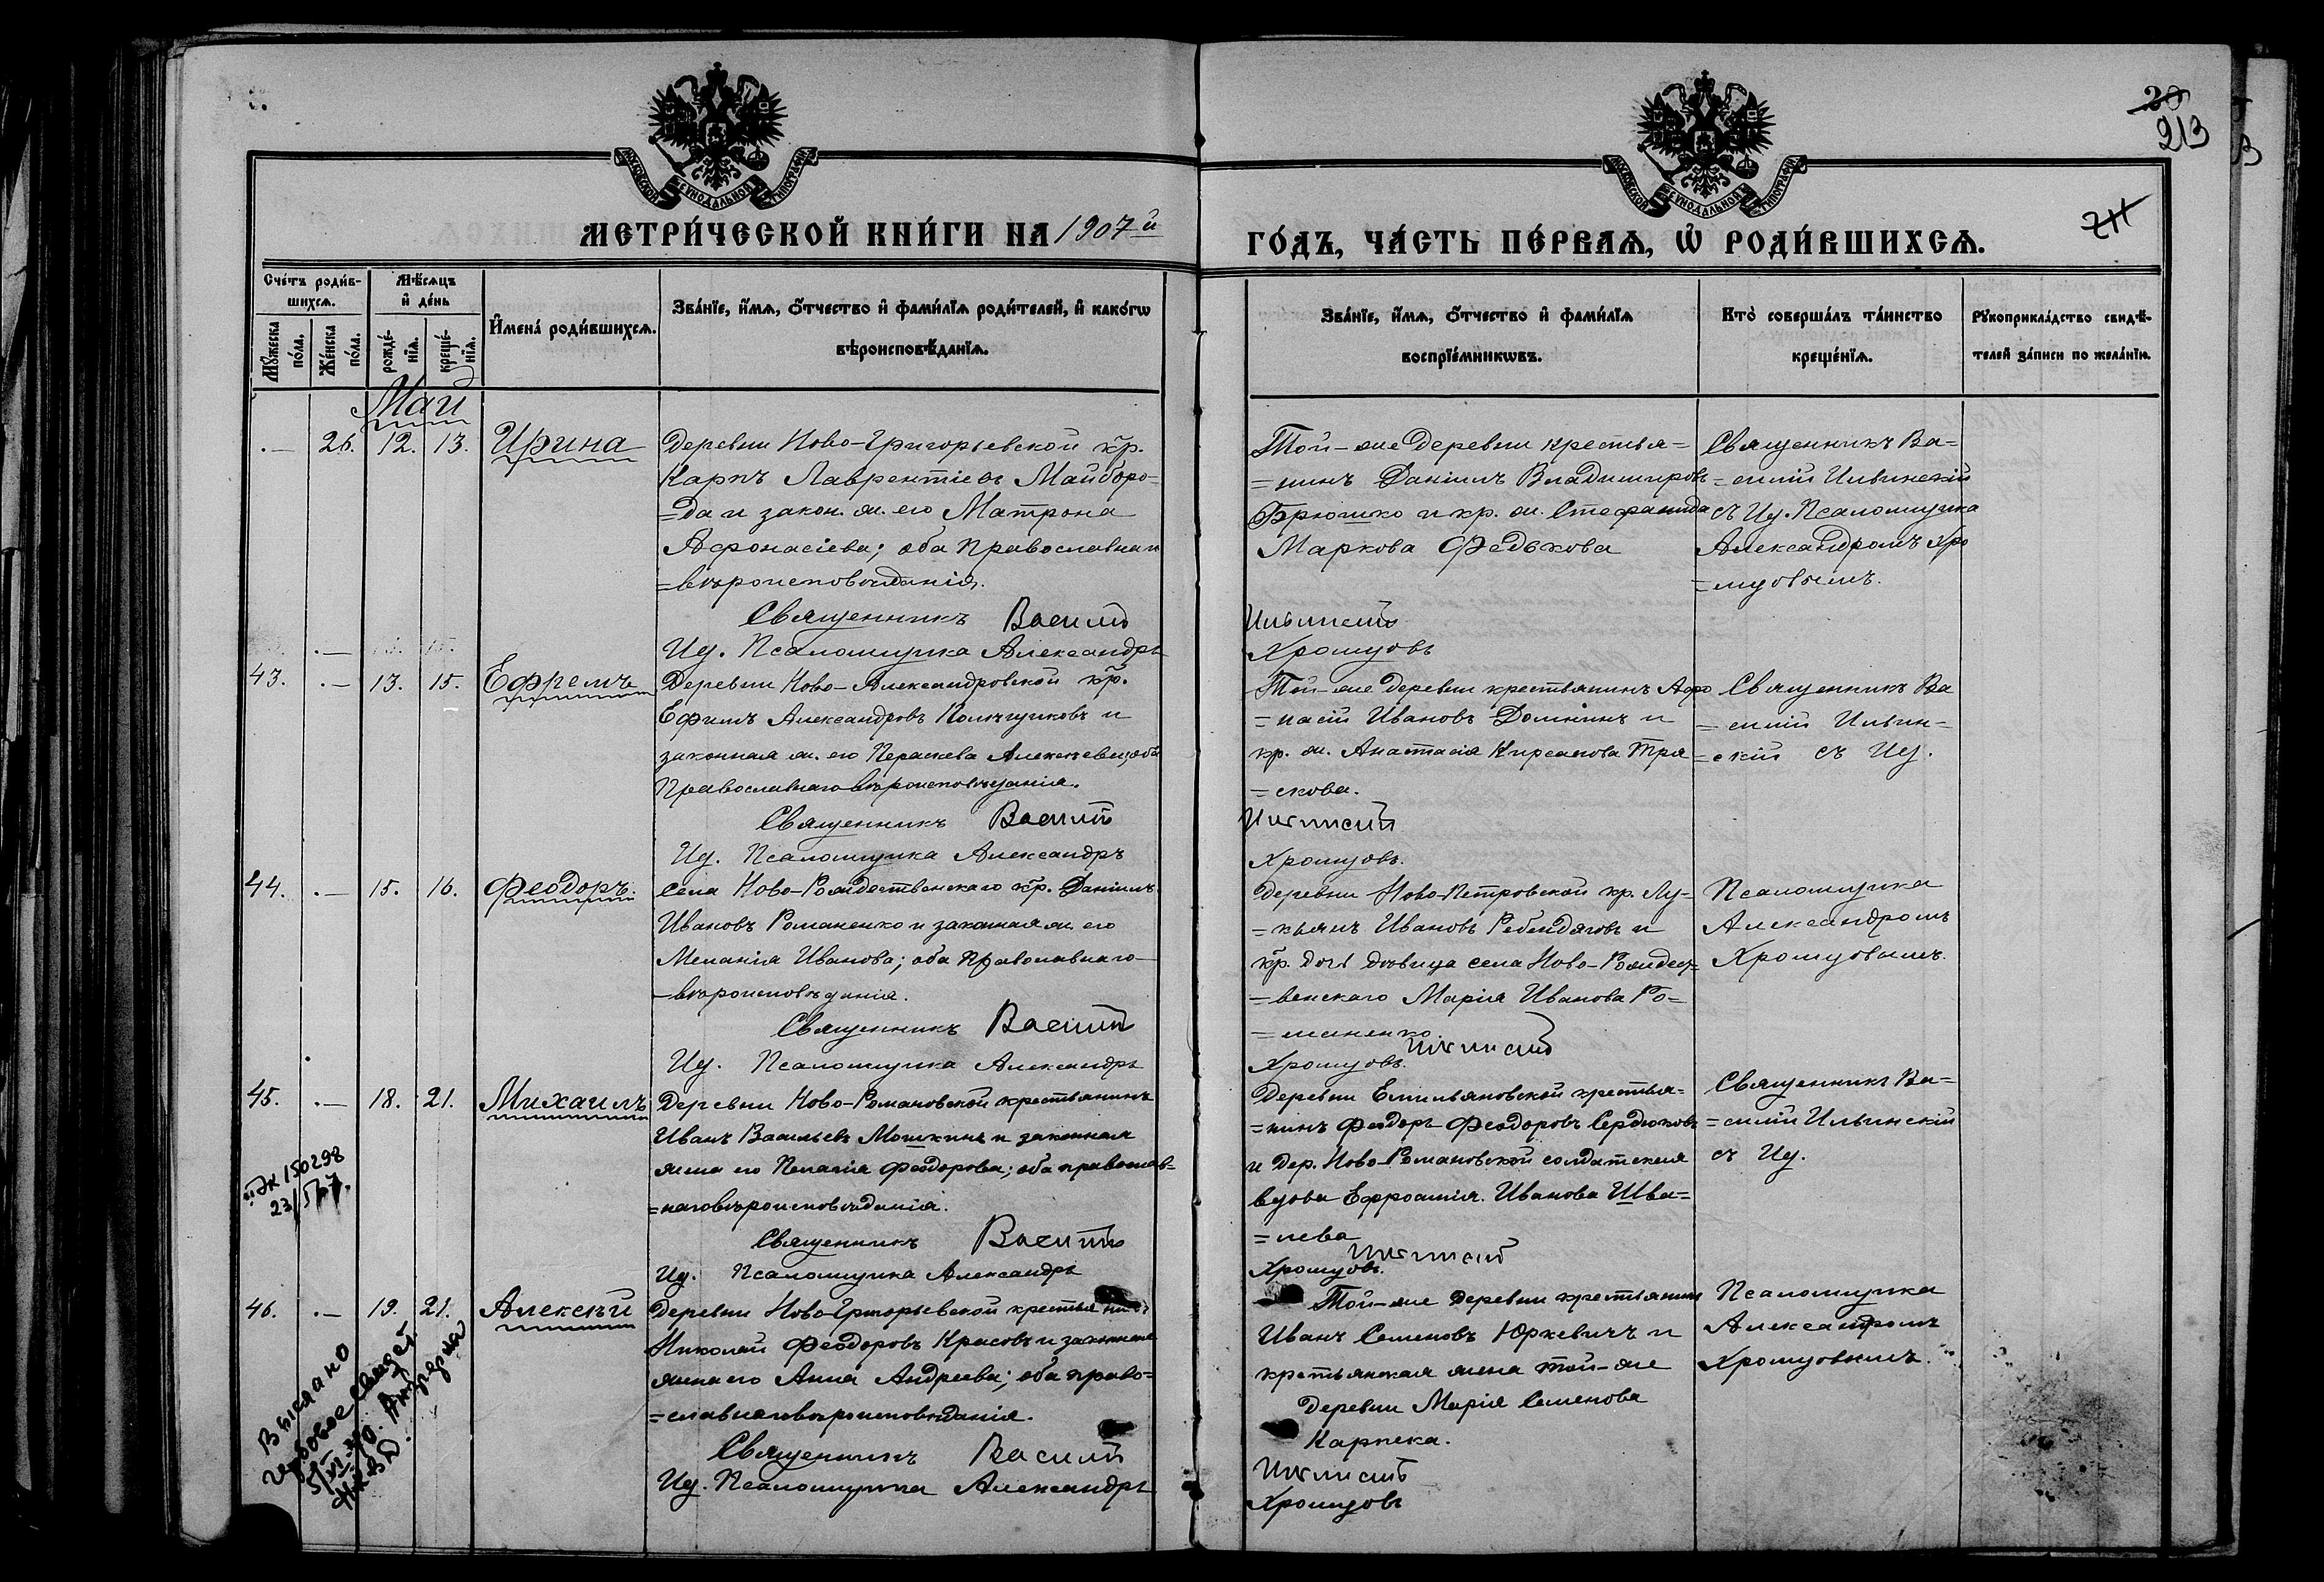 20
213
211
МОСКОВСКОЙ СѴНОДАЛЬНОЙ ТИПОГРАФІИ
МОСКОВСКОЙ СѴНОДАЛЬНОЙ ТИПОГРАФІИ
МЕТРИ́ЧЕСКОЙ КНИ́ГИ НА 1907й
ГО́ДЪ, ЧА́СТЬ ПЕ́РВАѦ, Ѽ РОДИ́ВШИХСѦ.
Сче́тъ роди́в-
шихсѧ.
Мꙋ́жеска по́ла.
Же́нска по́ла.
Мѣ́сѧцъ
и҆ де́нь
рожде́-нїѧ.
креще́-нїѧ.
И҆мена̀ роди́вшихсѧ.
Зва́нїе, и҆́мѧ, ѻ҆́тчество и҆ фами́лїѧ роди́телей, и҆ како́гѡ
вѣроисповѣ́данїѧ.
Зва́нїе, и҆́мѧ, ѻ҆́тчество и҆ фами́лїѧ
воспрїе́мникѡвъ.
Кто̀ соверша́лъ та́инство
креще́нїѧ.
Рꙋкоприкла́дство свидѣ́-
телей за́писи по жела́нїю.
Май
.— 26. 12. 13. Ирина
Деревни Ново-Григорьевской кр.
Карпъ Лаврентіевъ Майборо=
=да и закон. ж. его Матрона
Афонасіева; оба Православнаго
=вѣроисповѣданія.
Священникъ Василій
Ид. Псаломщика Александръ
Той-же Деревни крестья=
=нинъ Даніилъ Владимировъ
Брюшко и кр. ж. Стефанида
Маркова Федькова
Ильинскій
Хромцовъ
Священникъ Ва=
=силій Ильинскій
съ Ид. Псаломщика
Александромъ Хро
=мцовымъ.
43. .— 13. 15. Ефремъ
Деревни Ново-Александровской кр.
Ефимъ Александровъ Колчушковъ и
законная ж. его Пераскева Алексѣева; оба
Православнаго вѣроисповѣданія.
Священникъ Василій
Ид. Псаломщика Александръ
Той-же деревни крестьянинъ Афо
=насій Ивановъ Домнинъ и
кр. ж. Анастасія Кирсанова Тря
=скова.
Ильинскій
Хромцовъ.
Священникъ Ва
=силій Ильин=
=скій съ Ид.
44. .— 15. 16. Феодоръ.
Села Ново-Рождественскаго кр. Даніилъ
Ивановъ Романенко и законная ж. его
Меланія Иванова; оба Православнаго
=вѣроисповѣданія.
Священникъ Василій
Ид. Псаломщика Александръ
Деревни Ново-Петровской кр. Лу=
=кьянъ Ивановъ и
кр. дочь дѣвица села Ново-Рождест=
=венскаго Марія Иванова Ро=
=маненко.
Ильинскій
Хромцовъ.
Псаломщика
Александромъ
Хромцовымъ.
45. .— 18. 21. Михаилъ
Деревни Ново-Романовской крестьянинъ
Иванъ Васильевъ Мошкинъ и законная
жена его Пелагія Феодорова; оба православ=
=наго вѣроисповѣданія.
Священникъ Василій
Ид. Псаломщика Александръ
Деревни Емильяновской крестья=
=нинъ Феодоръ Феодоровъ Сердюковъ
и дер. Ново-Романовской солдатская
вдова Ефросинія Иванова Шва=
=лева
Ильинскій
Хромцовъ.
Священникъ Ва=
=силій Ильинскій
съ Ид.
150298
46. .— 19. 21. Алексѣй
Деревни Ново-Григорьевской крестьянинъ
Николай Феодоровъ Красовъ и законная
жена его Анна Андреева; оба право=
=славнаго вѣроисповѣданія.
Священникъ Василій
Ид. Псаломщика Александръ
Той-же деревни крестьянинъ
Иванъ Семеновъ Юркевичъ и
крестьянская жена той-же
деревни Марія Семенова
Карпека.
Ильинскій
Хромцовъ
Псаломщика
Александромъ
Хромцовымъ.
Выслано
НКВД.